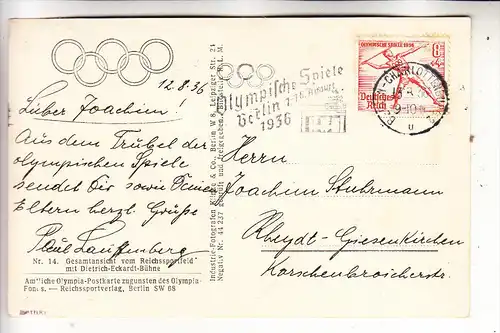 12.8.36
Lieber Joachim
Aus dem Trubel der
olympischen Spiele
sendet Dir sowie Deinen
Eltern herzl. Grüße
Paul Lauffenberg
Nr. 14. Gesamtansicht vom Reichssportfeld
mit Dietrich-Eckardt-Bühne
Amtliche Olympia-Postkarte zugunsten des Olympia-
Fonds. — Reichssportverlag, Berlin SW 68
Industrie-Fotografen Klinke & Co., Berlin W 8, Leipziger Str. 21
Negativ Nr. 44 237 geprüft und freigegeben
R. L. M.
Olympische Spiele
Berlin 1.-16. August
1936
OLYMPISCHE SPIELE 1936
8+4
Deutsches
Reich
BERLIN-CHARLOTTENBURG
9-10
u
Herrn
Joachim Stuhrmann
Rheydt-Giesenkirchen
Korschenbroicherstr.